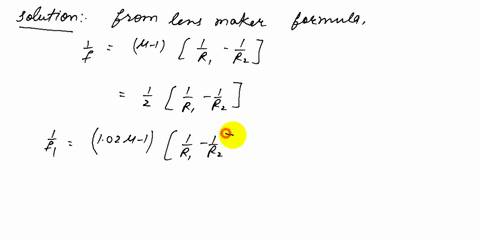 Solution:- From lens maker formula,
1/f = (μ-1) [ 1/R₁ - 1/R₂ ]
= 1/2 [ 1/R₁ - 1/R₂ ]
1/f₁ = (1.02 μ-1) [ 1/R₁ - 1/R₂